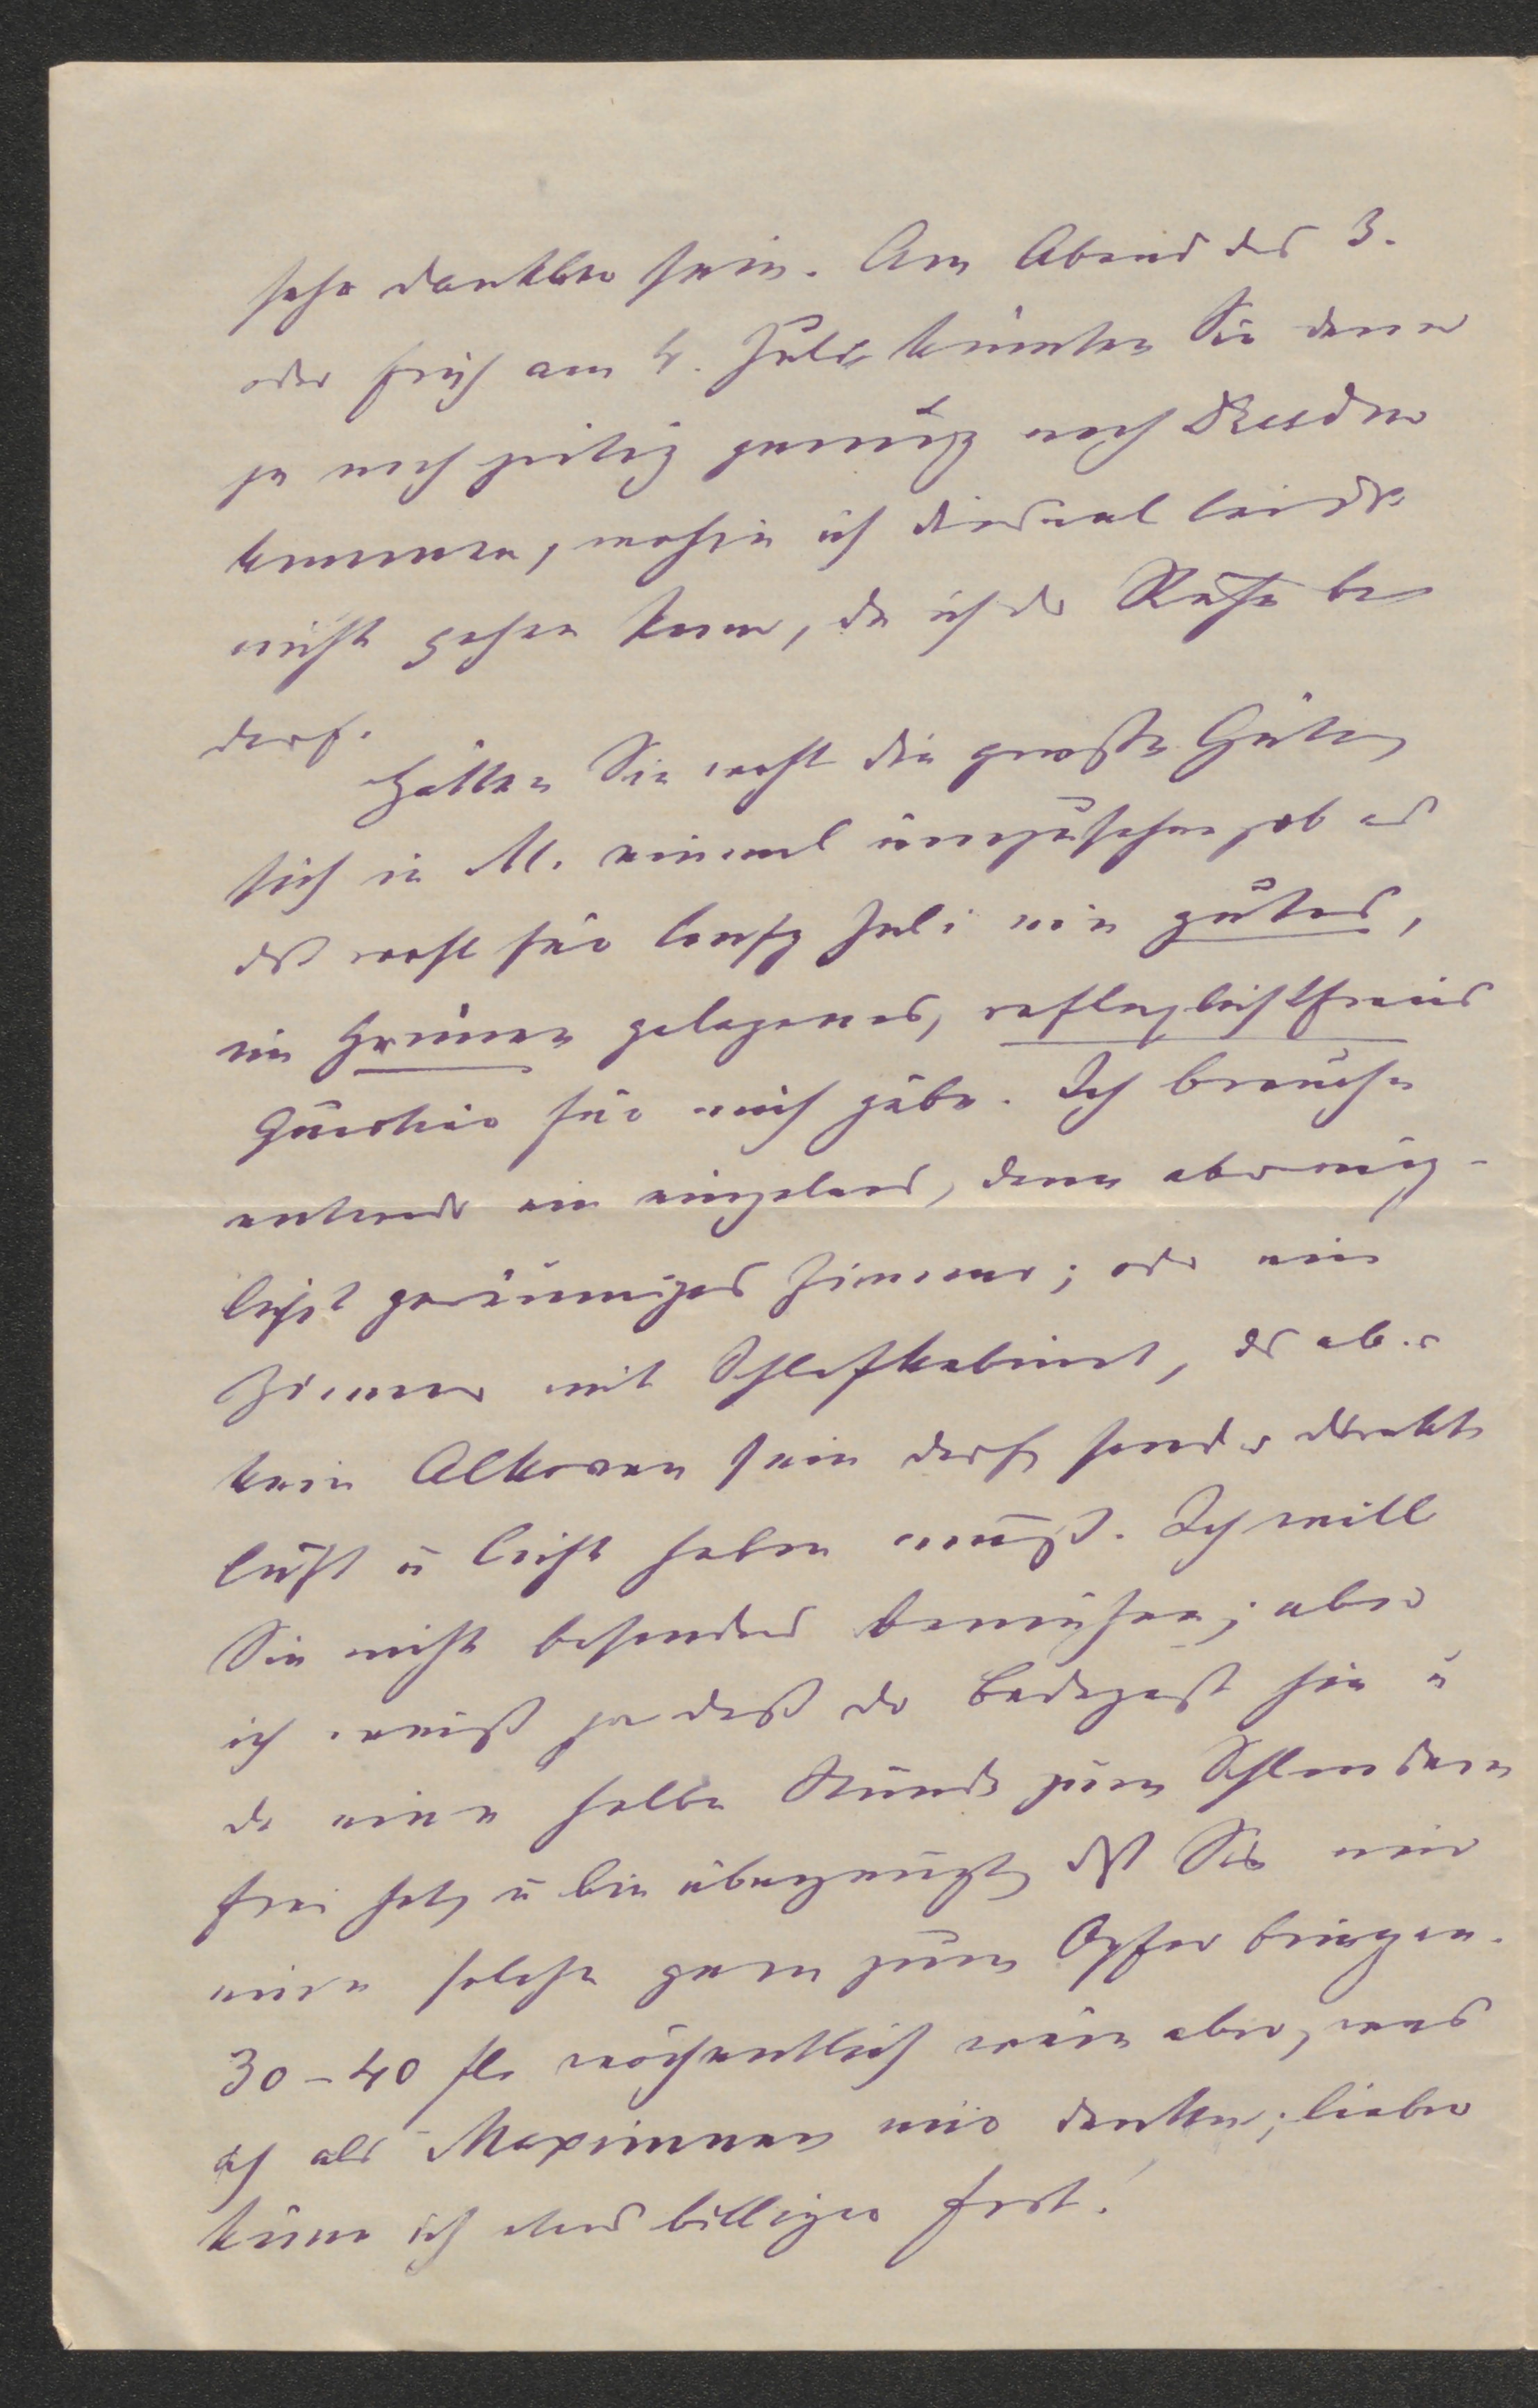 sehr dankbar sein. Am Abend des 3.
oder früh am 4. Juli könnten Sie dann
ja noch zeitig genug nach Dresden
kommen, wohin ich diesmal leider
nicht gehen kann, da ich der Ruhe be
darf.
Hätten Sie wohl die große Güte,
sich in M. einmal umzusehen, ob es
dort wohl für Juli ein gutes,
im Grünen gelegenes, reflexlichtfreies
Quartier für mich gäbe. Ich brauche
entweder ein einzelnes, dann aber mög-
lichst geräumiges Zimmer; oder ein
Zimmer mit Schlafkabinet, das aber
kein Alkoven sein darf, sonder direkte
Luft u Licht haben muß. Ich will
Sie nicht besonders bemühen; aber
ich weiß ja daß der Badegast hie u
da eine halbe Stunde zum Schlendern
frei hat, u bin überzeugt, dß Sie mir
eine solche gern zum Opfer bringen.
30-40 fl. wöchentlich wäre aber, was
ich als Maximum mir denke; lieber
käme ich etwas billiger fort!